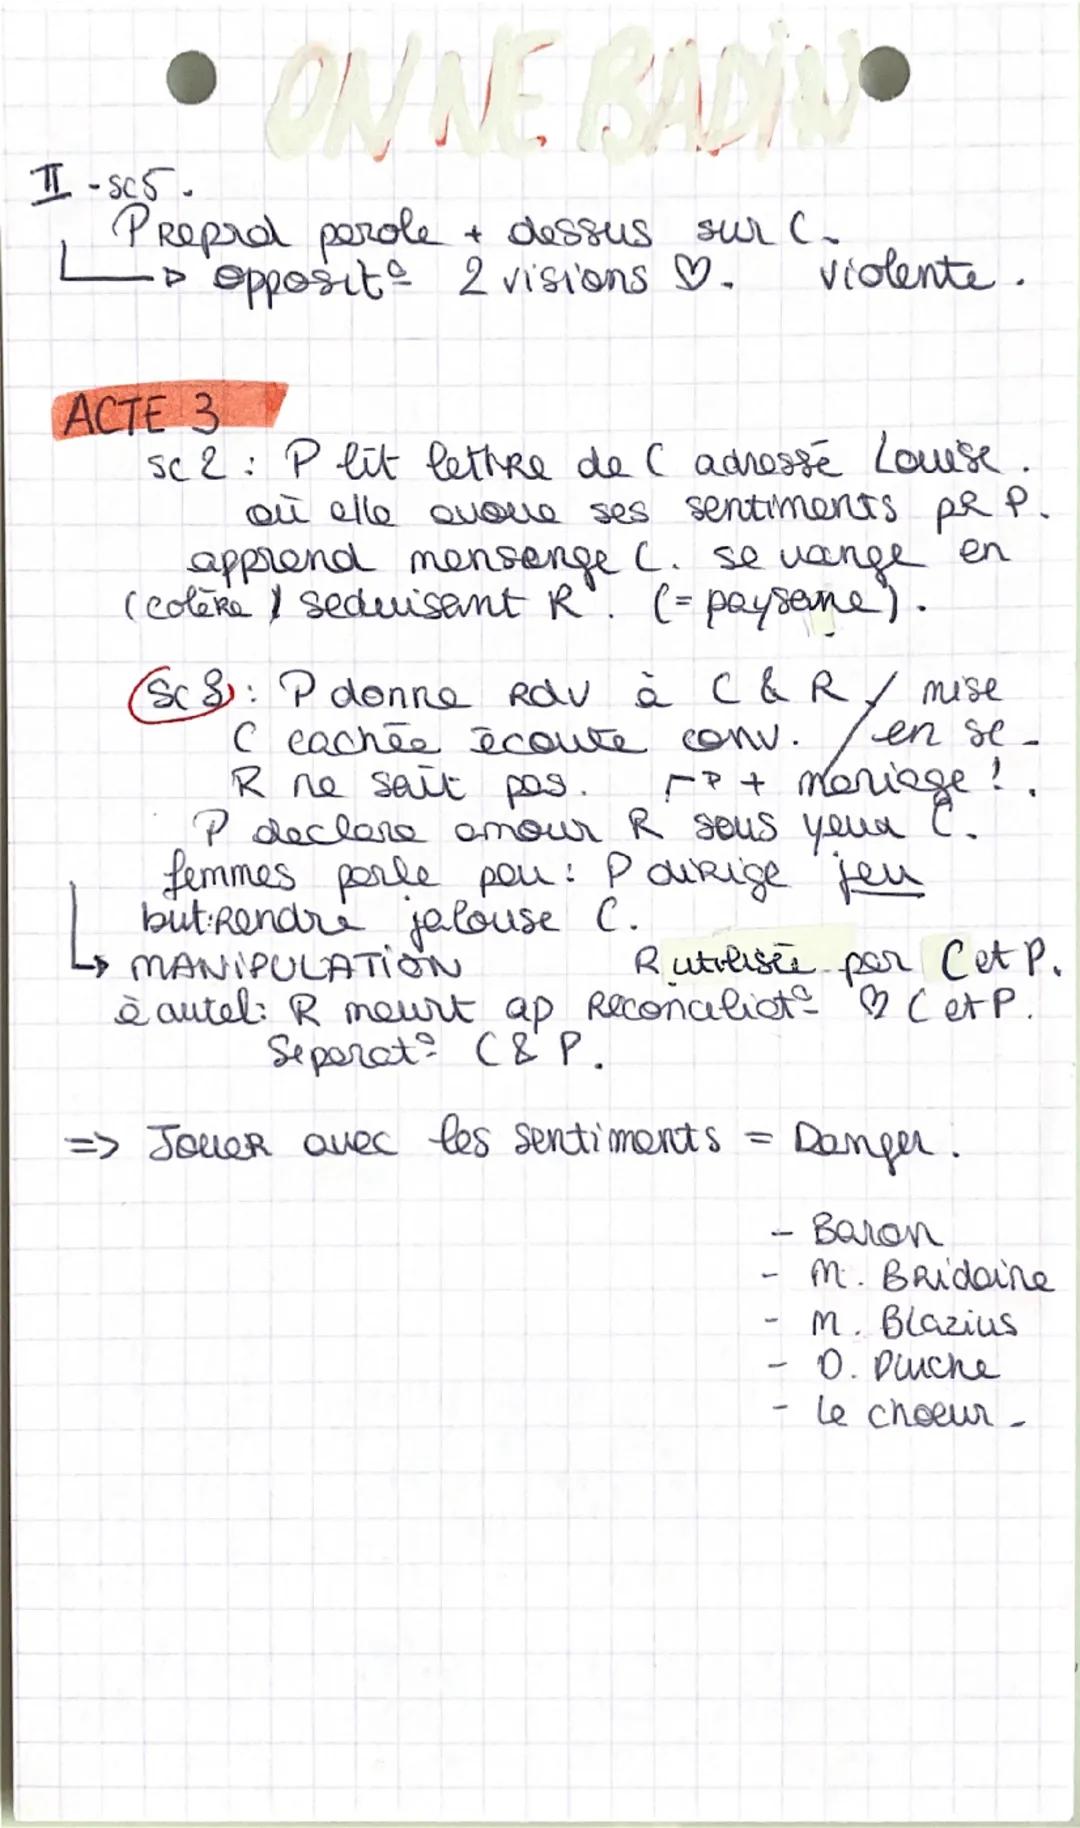 ON NE BADIN
II - sc5.
P reprd parole + dessus sur C.
↳ opposit° 2 visions ♡. violente.
ACTE 3
sc 2 : P lit lettre de C adressé Louise.
où elle avoue ses sentiments pr P.
apprend mensonge C. se vange en
(colère) seduisant R. (= paysane).
Sc 3 : P donne RDV à C & R / mise
C cachée écoute conv. / en sc.
R ne sait pas. + mariage !.
P declare amour R sous yeux C.
femmes parle peu : P dirige jeu
but: Rendre jalouse C.
↳ MANIPULATION R utilisée par C et P.
à autel : R meurt ap Reconciliat° ♡ C et P.
Séparat° C & P.
=> Jouer avec les sentiments = Danger.
- Baron
- M. Bridaine
- M. Blazius
- D. Pluche
- Le choeur.